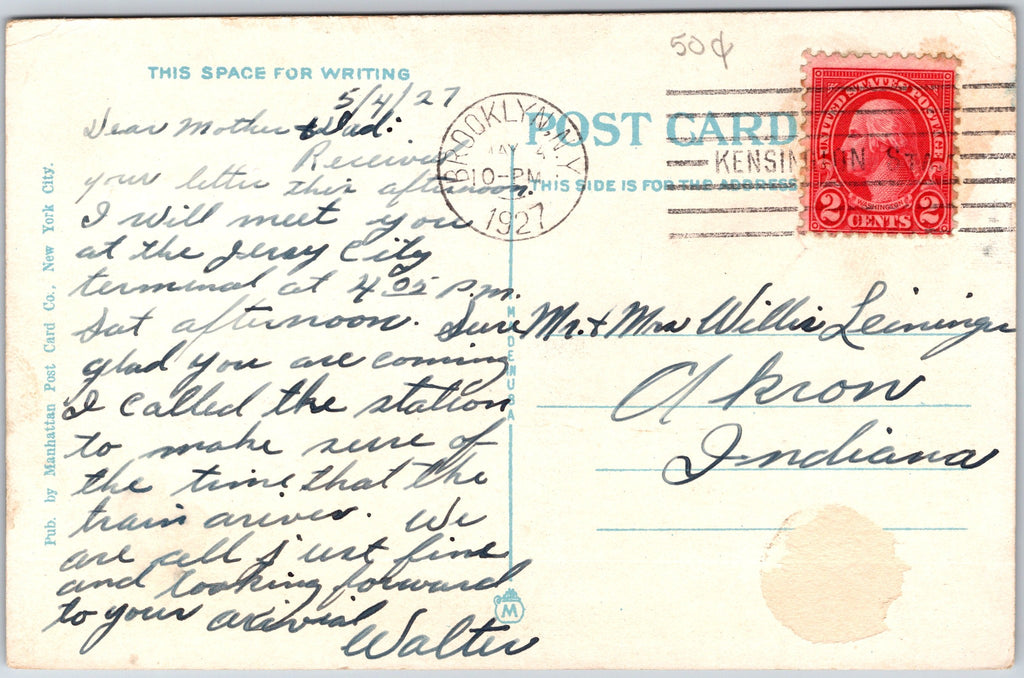 50¢
THIS SPACE FOR WRITING
5/4/27
Dear Mother & Dad:
Received
your letter this afternoon.
I will meet you
at the Jersy City
terminal at 4 05 P.m.
Sat afternoon. Sure
glad you are coming
I called the station
to make sure of
the time that the
train arives. We
are all just fine
and looking forward
to your arivial
Walter
Pub. by Manhattan Post Card Co., New York City.
BROOKLYN, N.Y.
MAY 4
10-PM
1927
POST CARD
THIS SIDE IS FOR THE ADDRESS
KENSINGTON STA
UNITED STATES POSTAGE
WASHINGTON
2 CENTS 2
MADE IN U S A
Mr. & Mrs Willis Leininger
Akron
Indiana
M